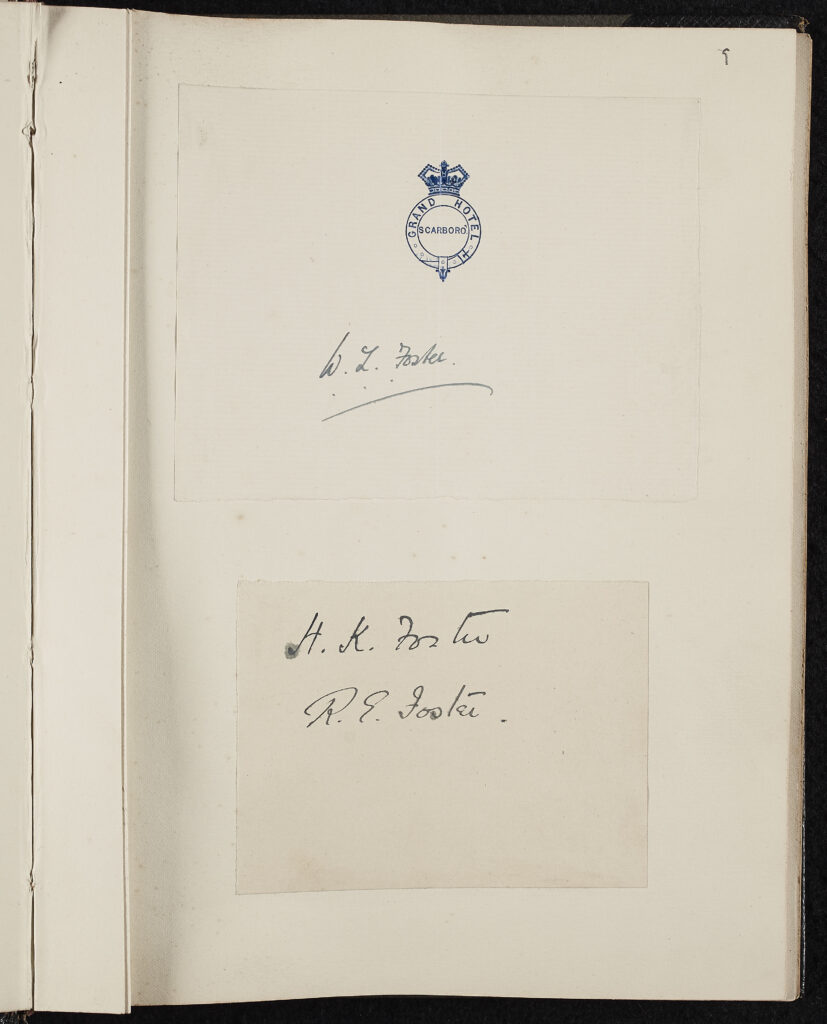 9
GRAND HOTEL
SCARBORO'.
W. L. Foster.
H. K. Foster
R. E. Foster.